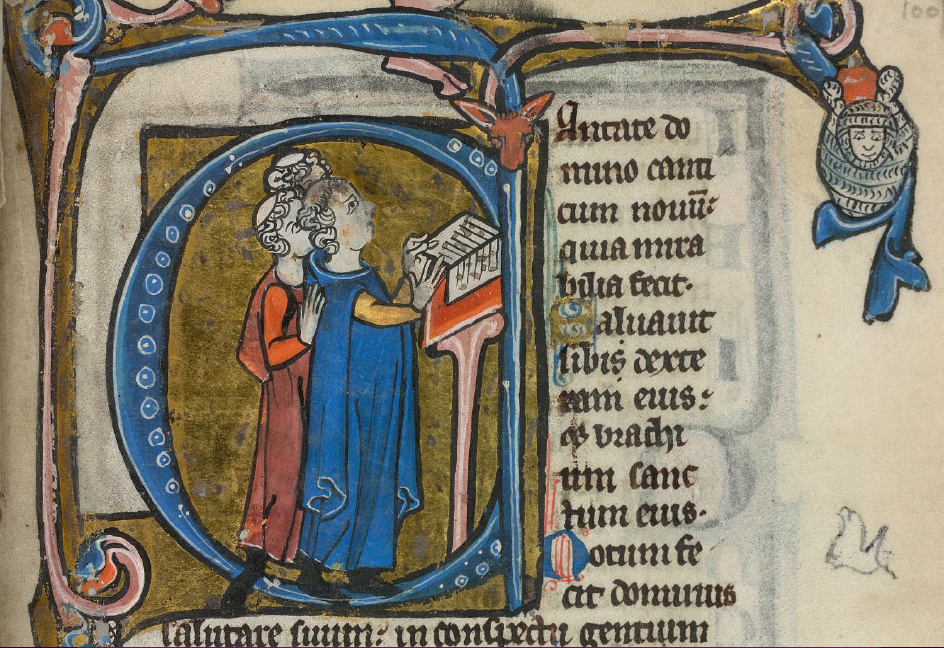 100
CAntate do
mino canti
cum nouū:
quia mira
bilia fecit.
Saluauit
sibi dexte
ram eius:
et brachi
um sanc
tum eius.
Notum fe
cit dominus
salutare suum: in conspectu gentium